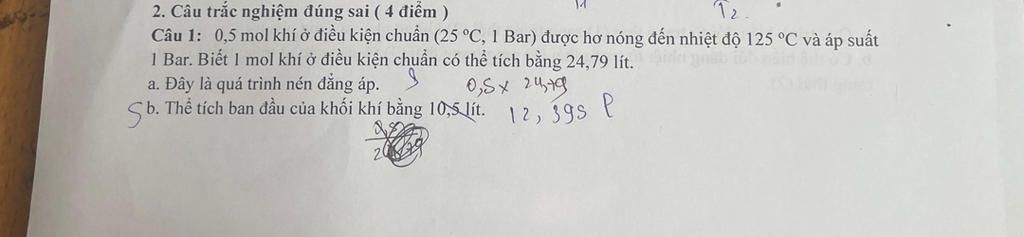 T2.
2. Câu trắc nghiệm đúng sai ( 4 điểm )
Câu 1: 0,5 mol khí ở điều kiện chuẩn (25 °C, 1 Bar) được hơ nóng đến nhiệt độ 125 °C và áp suất
1 Bar. Biết 1 mol khí ở điều kiện chuẩn có thể tích bằng 24,79 lít.
a. Đây là quá trình nén đẳng áp. 0,5 x 24,79
S b. Thể tích ban đầu của khối khí bằng 10,5 lít. 12,395 l